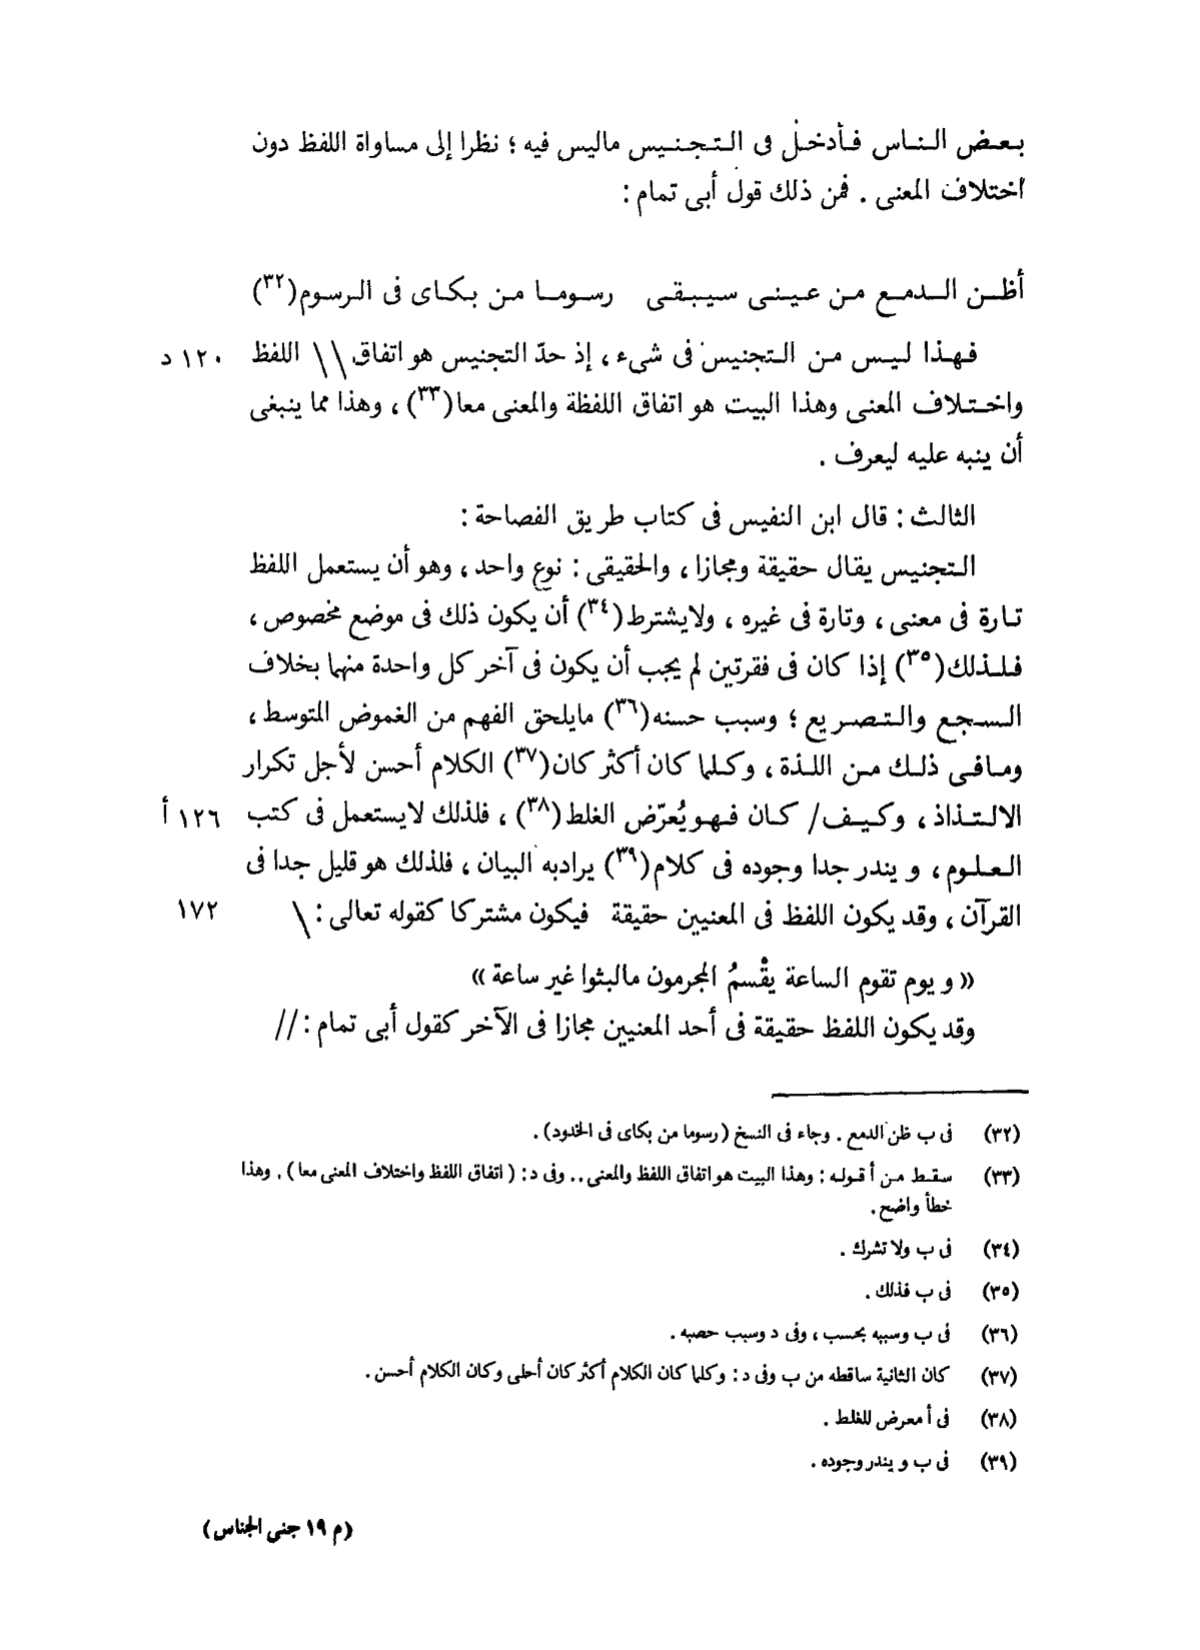 بعض الناس فأدخل فى التجنيس ماليس فيه ؛ نظرا إلى مساواة اللفظ دون
اختلاف المعنى . فمن ذلك قول أبى تمام :
أظن الدمع من عينى سيبقى رسوما من بكاى فى الرسوم(٣٢)
فهذا ليس من التجنيس فى شىء ، إذ حدّ التجنيس هو اتفاق \\ اللفظ ١٢٠ د
واختلاف المعنى وهذا البيت هو اتفاق اللفظة والمعنى معا(٣٣) ، وهذا مما ينبغى
أن ينبه عليه ليعرف .
الثالث : قال ابن النفيس فى كتاب طريق الفصاحة :
التجنيس يقال حقيقة ومجازا ، والحقيقى : نوع واحد ، وهو أن يستعمل اللفظ
تارة فى معنى ، وتارة فى غيره ، ولايشترط(٣٤) أن يكون ذلك فى موضع مخصوص ،
فلذلك(٣٥) إذا كان فى فقرتين لم يجب أن يكون فى آخر كل واحدة منهما بخلاف
السجع والتصريع ؛ وسبب حسنه(٣٦) مايلحق الفهم من الغموض المتوسط ،
ومافى ذلك من اللذة ، وكلما كان أكثر كان(٣٧) الكلام أحسن لأجل تكرار
الالتذاذ ، وكيف/ كان فهو يُعرّض الغلط(٣٨) ، فلذلك لايستعمل فى كتب ١٢٦ أ
العلوم ، ويندر جدا وجوده فى كلام(٣٩) يرادبه البيان ، فلذلك هو قليل جدا فى
القرآن ، وقد يكون اللفظ فى المعنيين حقيقة فيكون مشتركا كقوله تعالى : \ ١٧٢
« ويوم تقوم الساعة يقْسمُ المجرمون مالبثوا غير ساعة »
وقد يكون اللفظ حقيقة فى أحد المعنيين مجازا فى الآخر كقول أبى تمام : //
(٣٢) فى ب ظن الدمع . وجاء فى النسخ (رسوما من بكاى فى الخدود) .
(٣٣) سقط من أ قوله : وهذا البيت هو اتفاق اللفظ والمعنى .. وفى د : (اتفاق اللفظ واختلاف المعنى معا) . وهذا
خطأ واضح .
(٣٤) فى ب ولا تشرك .
(٣٥) فى ب فذلك .
(٣٦) فى ب وسببه بحسب ، وفى د وسبب حصبه .
(٣٧) كان الثانية ساقطه من ب وفى د : وكلما كان الكلام أكثر كان أحلى وكان الكلام أحسن .
(٣٨) فى أ معرض للغلط .
(٣٩) فى ب ويندر وجوده .
(م ١٩ جنى الجناس)